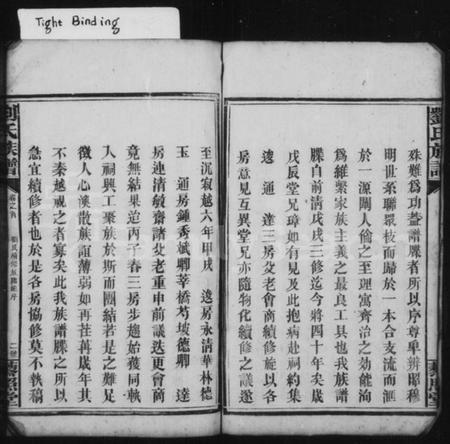 Tight Binding
劉氏族譜
殊難爲功蓋譜牒者所以序尊卑辨昭穆
明世系聯衆枝而歸於一本合支流而滙
於一源關人倫之至理寓齊治之功能洵
爲維繫家族主義之最良工具也我族譜
牒自前清戊戌三修迄今將四十年矣歲
戊辰堂兄璋如有見及此抱病赴祠約集
逵通達三房父老會商續修旋以各
房意見互異堂兄亦隨物化續修之議遂
至沉寂越六年甲戌逵房永清華林德
玉通房鍾秀斌卿莘橋芍坡德卿達
房連清敏齋諸父老重申前議迭更會商
竟無結果迨丙子春三房步趨始獲同軌
入祠興工聚族於斯而團結若是之難足
徵人心渙散族誼薄弱如再荏苒歲年其
不秦越視之者寡矣此我族譜牒之所以
急宜續修者也於是各房協修莫不執稿
劉氏族譜
卷之首
二
藜照堂